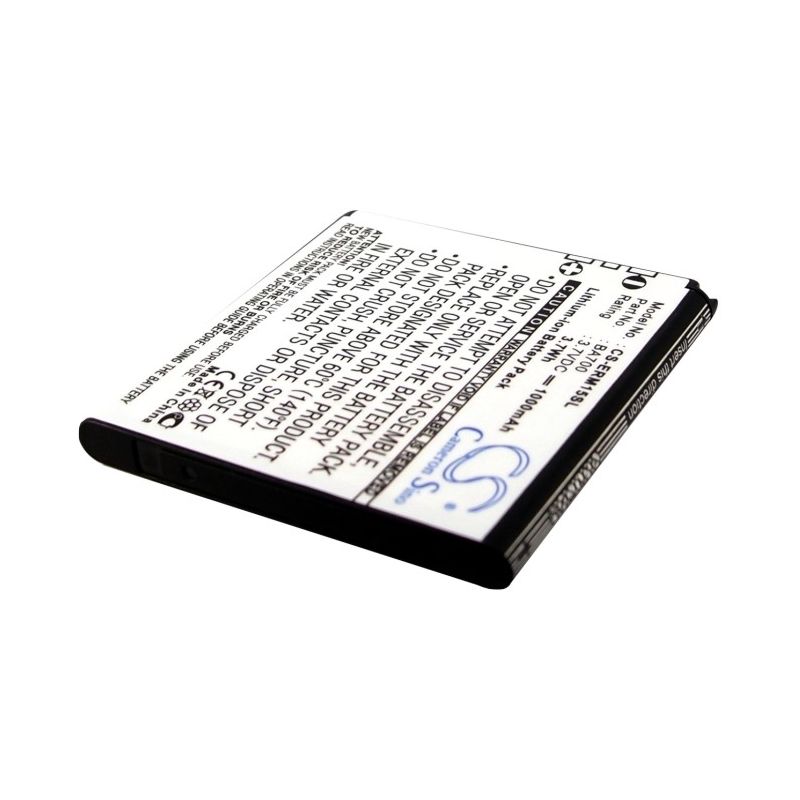 Insert this side
Model No.: CS-ERM15SL
Part No.: BA700
Rating: 3.7VDC 1000mAh
3.7Wh
Lithium-Ion Battery Pack
CAUTION: WARRANTY VOID IF LABEL IS REMOVED
•REPLACE ONLY WITH THE BATTERY PACK.
PACK DESIGNATED FOR THE PRODUCT.
•DO NOT ATTEMPT TO DISASSEMBLE,
OPEN OR
EXTERNAL CONTACTS OR DISPOSE OF
IN FIRE OR WATER.
CRUSH, HEAT ABOVE 60°C (140°F), SHORT
ATTENTION:
TO REDUCE RISK OF FIRE OR BURNS
NEW BATTERY PACK MUST BE FULLY CHARGED BEFORE USE.
READ INSTRUCTIONS IN OPERATING GUIDE BEFORE USING THE BATTERY
Made in China
CE
CS
Cameron Sino